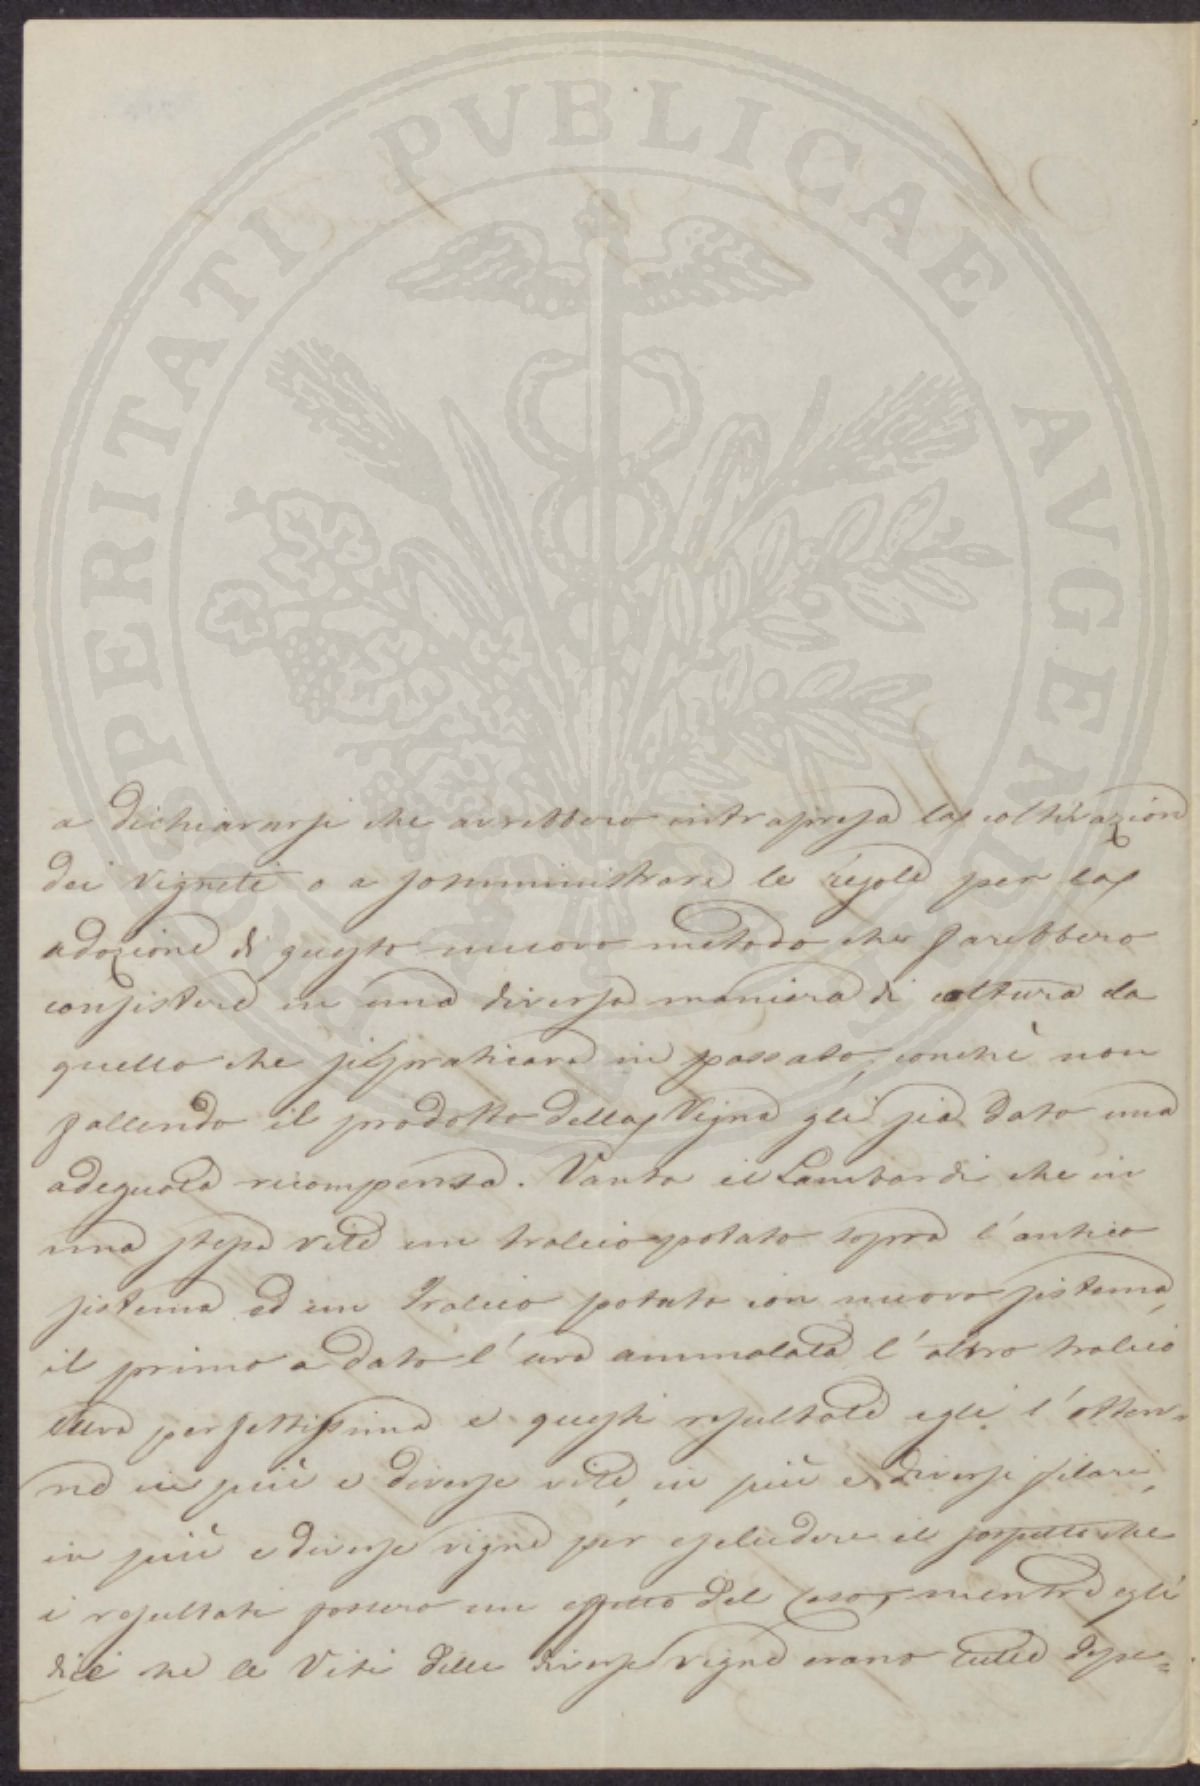 PROSPERITATI PVBLICAE AVGENDAE
a dichiararsi che avrebbero intrapresa la coltivazion
dei Vigneti o a somministrare le regole per la
adozione di questo nuovo metodo che farebbero
consistere in una diversa maniera di coltura da
quello che si praticava in passato, conchè non
fallendo il prodotto della Vigna gli sia dato una
adeguata ricompensa. Vanta il Lambardi che in
una stessa vite un tralcio potato sopra l'antico
sistema ed un Tralcio potato con nuovo sistema,
il primo a dato l'uva ammalata l'altro tralcio
l'uva perfettissima e questi resultati egli l'otten=
ne in più e diverse vite, in più e diversi filari,
in più e diverse vigne per escludere il sospetto che
i resultati fossero un effetto del Caso, mentre egli
dice che le Viti delle diverse vigne erano tutte